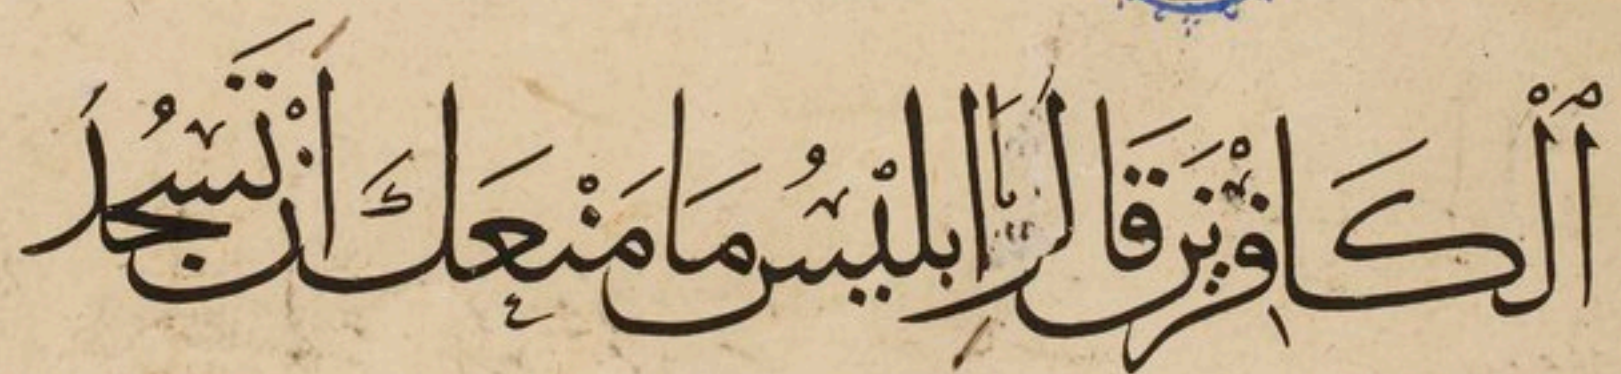 ٱلْكَافِرِيْنَ قَالَ يَا اِبْلِيْسُ مَا مَنْعَكَ اَنْ تَسْجُدَ